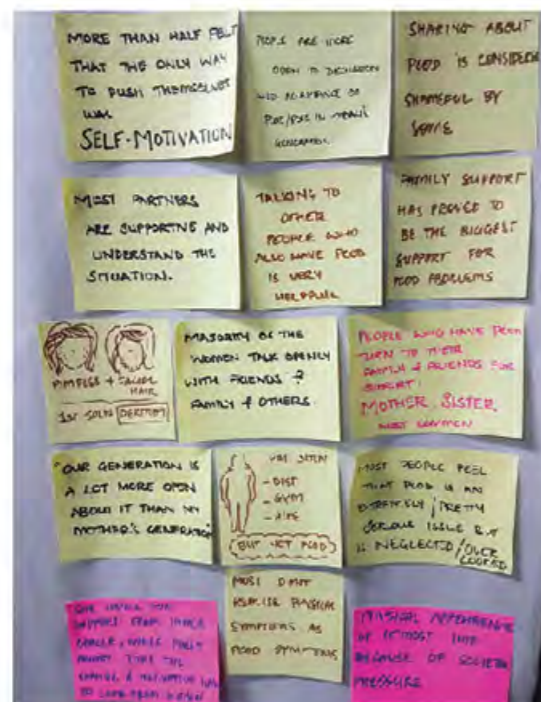 MORE THAN HALF FELT
THAT THE ONLY WAY
TO PUSH THEMSELVES
WAS
SELF-MOTIVATION
PEOPLE ARE MORE
OPEN TO DISCUSSION
AND ACCEPTANCE OF
IN
GENERATION.
SHARING ABOUT
PCOD IS CONSIDERED
SHAMEFUL BY
SOME
MOST PARTNERS
ARE SUPPORTIVE AND
UNDERSTAND THE
SITUATION.
TALKING TO
OTHER
PEOPLE WHO
ALSO HAVE PCOD
IS VERY
HELPFUL
FAMILY SUPPORT
HAS PROVED TO
BE THE BIGGEST
SUPPORT FOR
PCOD PROBLEMS
PIMPLES + FACIAL
HAIR
1ST SOLN DERMAT
MAJORITY OF THE
WOMEN TALK OPENLY
WITH FRIENDS &
FAMILY & OTHERS
PEOPLE WHO HAVE PCOD
TURN TO THEIR
FAMILY & FRIENDS FOR
SUPPORT:
MOTHER, SISTER
MOST COMMON
"OUR GENERATION IS
A LOT MORE OPEN
ABOUT IT THAN MY
MOTHER'S GENERATION"
- DIET
- GYM
BUT NOT PCOD
MOST PEOPLE FEEL
THAT PCOD IS AN
EXTREMELY / PRETTY
SERIOUS ISSUE BUT
IS NEGLECTED / OVER
LOOKED
SUPPORT FROM INNER
CIRCLE, WHILE
THAT THE
CHANGE & MOTIVATION HAS
TO COME FROM WITHIN
MOST DON'T
REALISE PHYSICAL
SYMPTOMS AS
PCOD SYMPTOMS
PHYSICAL APPEARANCE
OF UTMOST IMP
BECAUSE OF SOCIETAL
PRESSURE